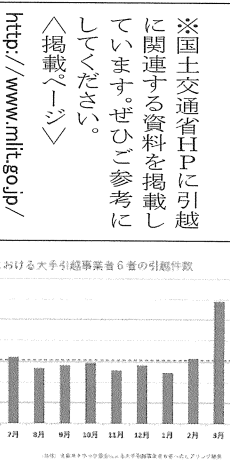 ※国土交通省HPに引越
に関連する資料を掲載し
ています。ぜひご参考に
してください。
〈掲載ページ〉
http://www.mlit.go.jp/
おける大手引越事業者6者の引越件数
7月 8月 9月 10月 11月 12月 1月 2月 3月